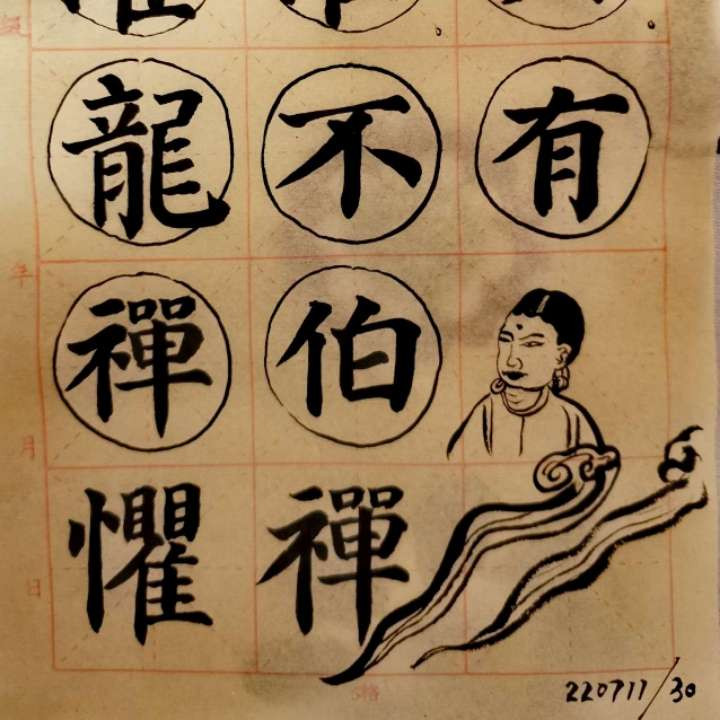 有
不伯禪
龍禪懼
年月日
220711/30